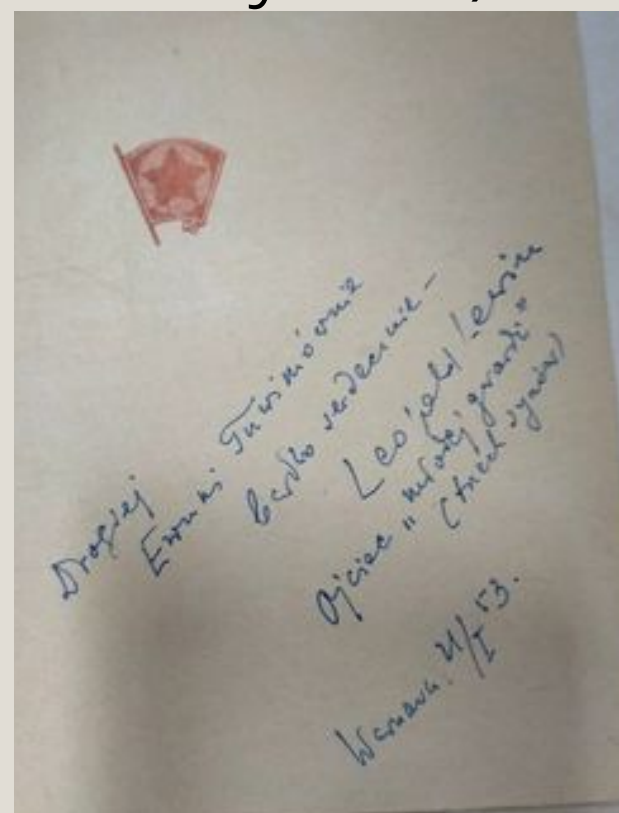 Drogiej
Ewuni Tuwimównie
bardzo serdecznie –
Leopold Lewin
Ojciec „młodej gwardii”
(trzech synów)
Warszawa. 21/I 53.